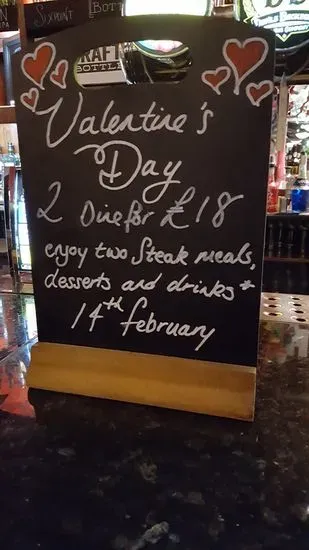 SIXPOINT
CRAFT
BOTTLE
Valentine's
Day
2 Dine for £18
enjoy two Steak meals,
desserts and drinks*
14th february